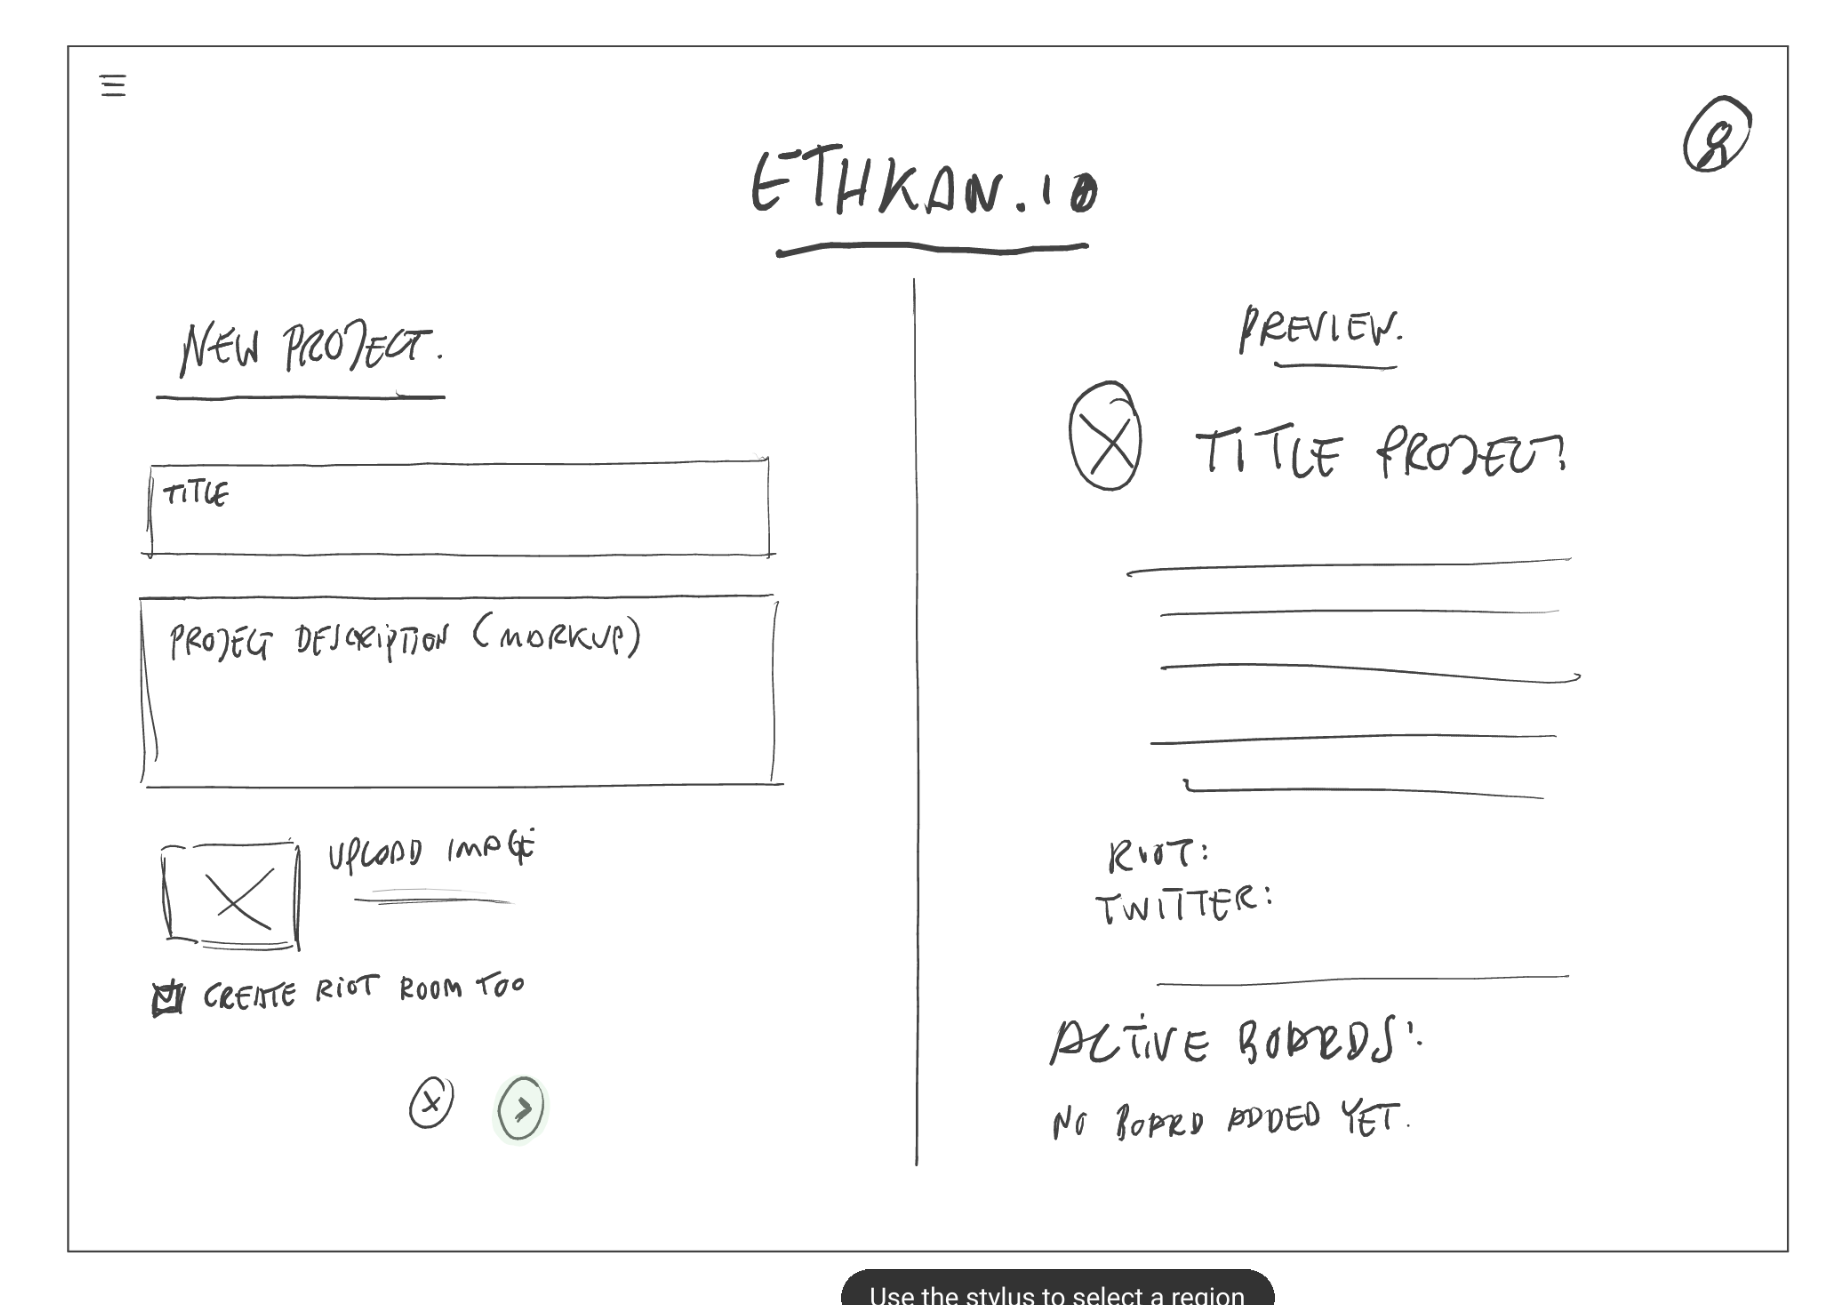 ETHKAN.IO
NEW PROJECT.
TITLE
PROJECT DESCRIPTION (MARKUP)
UPLOAD IMAGE
CREATE RIOT ROOM TOO
PREVIEW.
TITLE PROJECT
RIOT:
TWITTER:
ACTIVE BOARDS:
NO BOARD ADDED YET.
Use the stylus to select a region